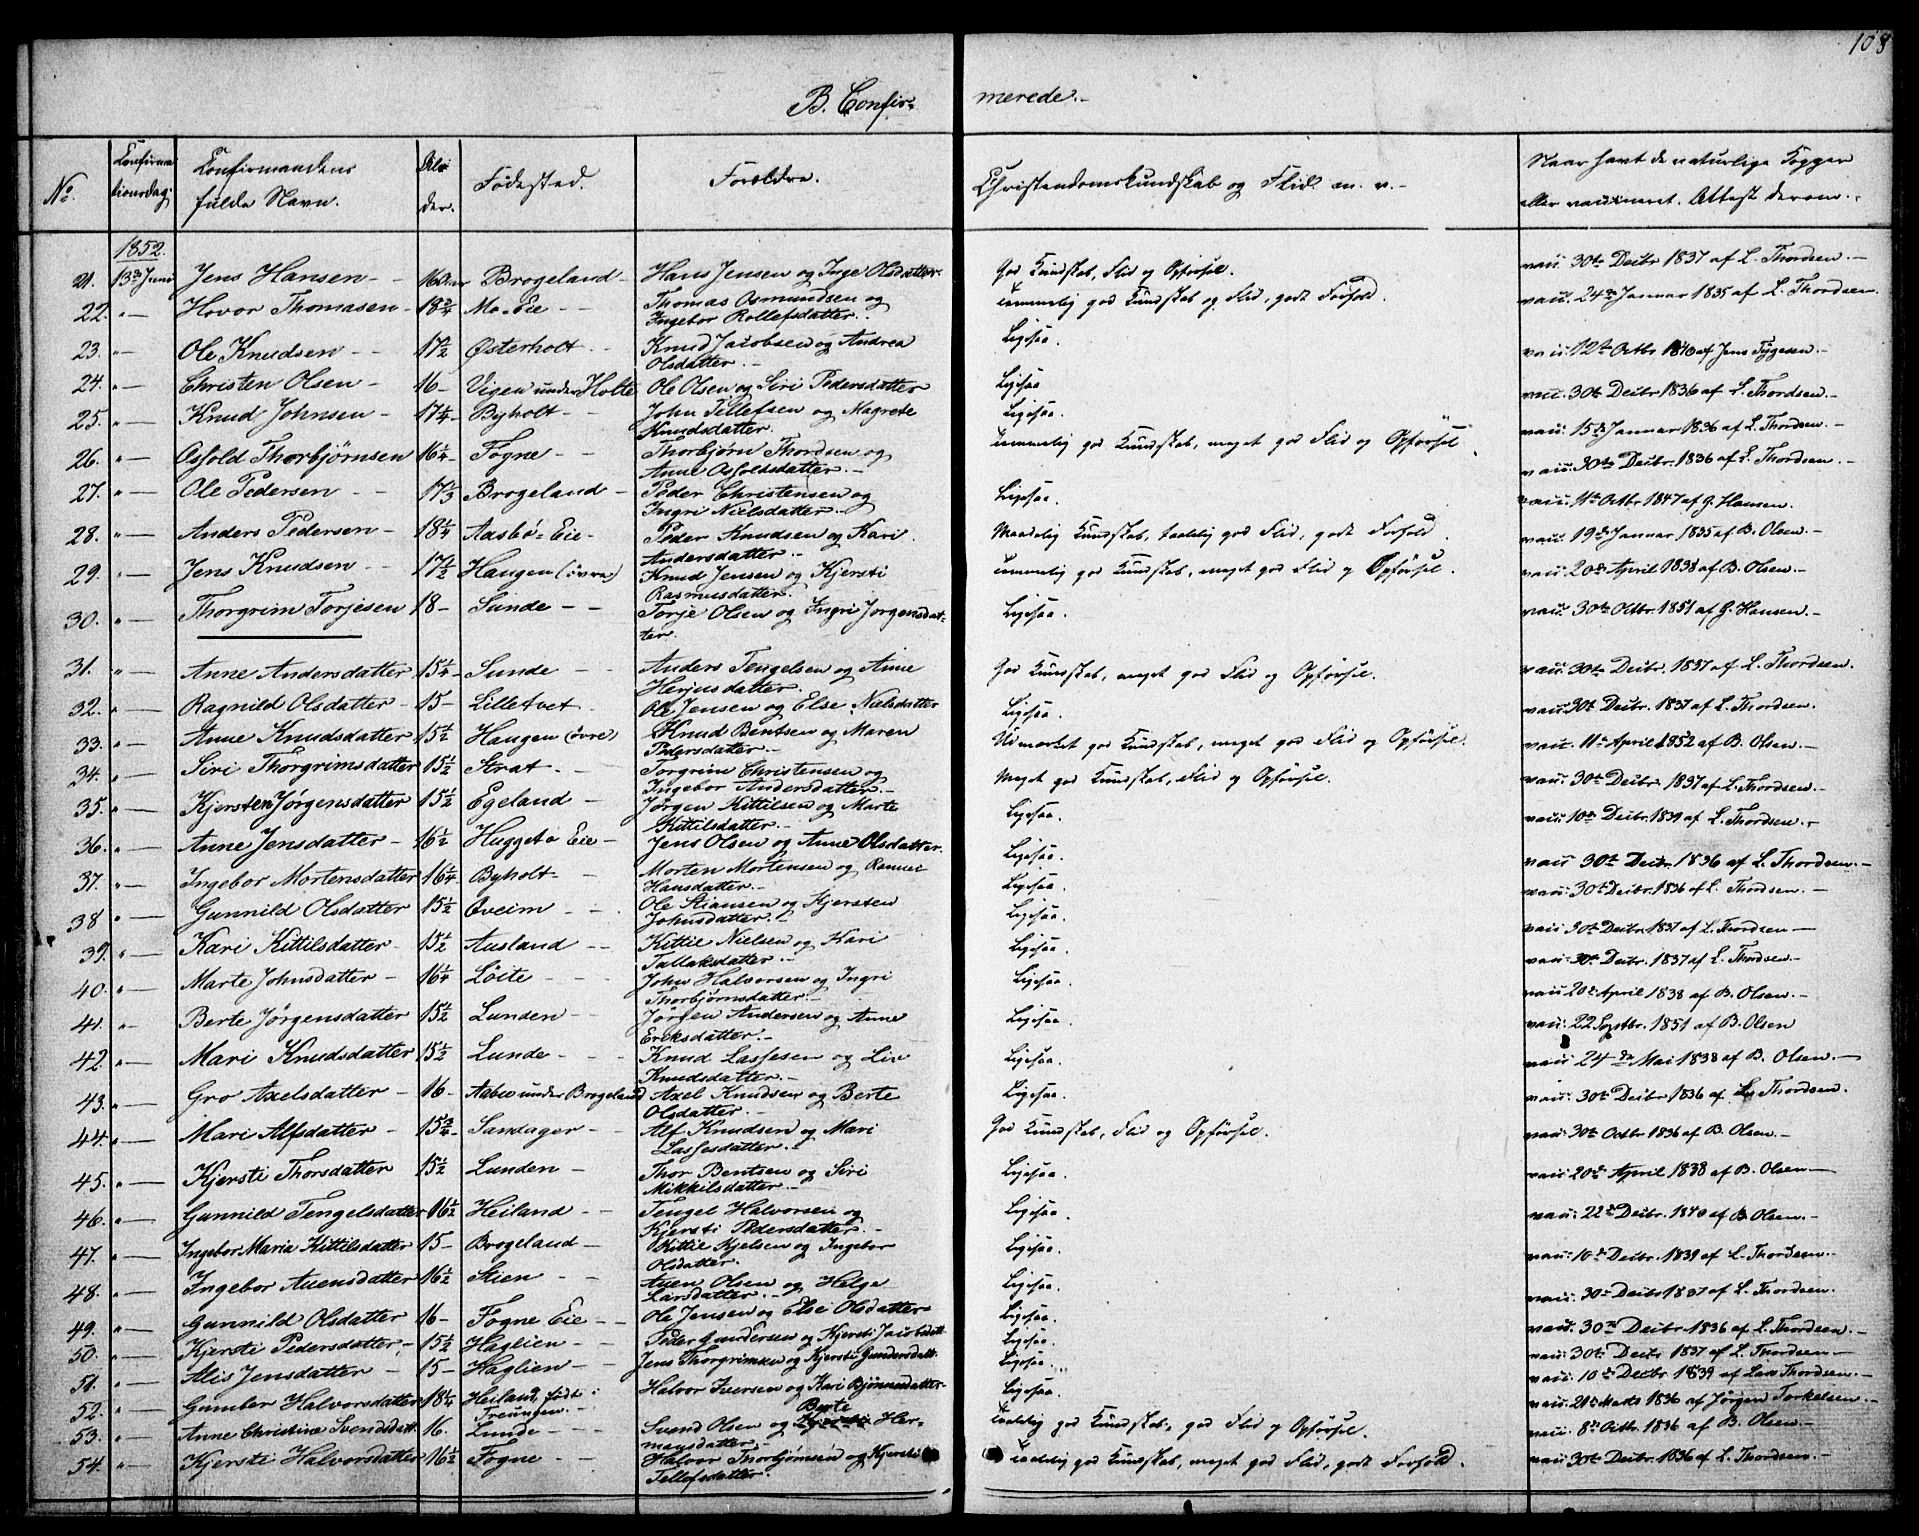 108
B. Confir- merede.-
No. Confirma- Confirmandens Al- Fødested. Forældre. Christendomskundskab og Flid m. v.- Naar havt de naturlige Kopper
tionsdag. fulde Navn. der. eller vaccineret. Attest derom.-
1852.
21. 13de Juni Jens Hansen - 16 Aar Brogeland - Hans Jensen og Inge Olsdatter. God Kundskab, Flid og Opførsel. vacc: 30te Decbr 1837 af L. Thordsen.-
22. " - Hovor Thomasen - 18 3/4 Mo-Eie - - Thomas Osmundsen og temmelig god Kundskab og Flid, godt Forhold. vacc: 24de Januar 1835 af L. Thordsen.
Ingebor Rollefsdatter.
23. " - Ole Knudsen - - 17 1/2 Østerholt - Knud Jacobsen og Andrea Ligesaa. vacc: 12te Octbr 1840 af Jens Tygesen.-
Olsdatter. -
24. " - Christen Olsen - 16 - Vigen under Holte Ole Olsen og Siri Pedersdatter Ligesaa vacc: 30te Decbr 1836 af L. Thordsen.-
25. " - Knud Johnsen - 17 1/4 - Byholt - - John Tellefsen og Magrete Ligesaa. vacc: 15de Januar 1836 af L. Thordsen.-
Knudsdatter.
26. " - Osfold Thorbjørnsen 16 1/4 - Fogne - - Thorbjørn Thordsen og temmelig god Kundskab, meget god Flid og Opførsel. vacc: 30te Decbr 1836 af L. Thordsen.-
Anne Osfoldsdatter. -
27. " - Ole Pedersen - - 17 1/3 Brogeland - Peder Christensen og Ligesaa. vacc: 11te Octbr 1847 af G. Hansen.
Ingri Nielsdatter. -
28. " - Anders Pedersen - 18 1/4 Aasbø-Eie - Peder Knudsen og Kari Maadelig Kundskab, taalelig god Flid, godt Forhold. vacc: 19de Januar 1835 af B. Olsen
Andersdatter. -
29. " - Jens Knudsen - - 17 1/2 Haugen (øvre) Knud Jensen og Kjersti temmelig god Kundskab, meget god Flid og Opførsel. vacc: 20de April 1838 af B. Olsen.-
Rasmusdatter.
30. " - Thorgrim Torjesen 18 - Sunde - - Torje Olsen og Ingri Jørgensdat- Ligesaa. vacc: 30te Octbr. 1851 af G. Hansen.-
ter.
31. " - Anne Andersdatter 15 1/4 - Sunde - - Anders Tengelsen og Anne God Kundskab, meget god Flid og Opførsel. vacc: 30te Decbr. 1837 af L. Thordsen.
Herjusdatter. -
32. " - Ragnild Olsdatter - 15 - Lilletvet - Ole Jensen og Else Nielsdatter Ligesaa. vacc: 30te Decbr. 1837 af L. Thordsen.
33. " - Anne Knudsdatter 15 1/2 Haugen (øvre) Knud Bentsen og Maren Udmærket god Kundskab, meget god Flid og Opførsel. vacc: 11te April 1852 af B. Olsen.-
Pedersdatter. -
34. " - Siri Thorgrimsdatter 15 1/2 Strat - - Torgrim Christensen og Meget god Kundskab, Flid og Opførsel. vacc: 30te Decbr. 1837 af L. Thordsen.
Ingebor Andersdatter. -
35. " - Kjersten Jørgensdatter 15 1/2 Egeland - Jørgen Kittilsen og Marte Ligesaa. vacc: 10de Decbr. 1839 af L. Thordsen.-
Kittilsdatter. -
36. " - Anne Jensdatter - 16 1/2 Huggeto Eie - Jens Olsen og Anne Olsdatter. Ligesaa. vacc: 30te Decbr. 1836 af L. Thordsen.-
37. " - Ingebor Mortensdatter 16 1/4 Byholt - - Morten Mortensen og Rannei Ligesaa. vacc: 30te Decbr. 1836 af L. Thordsen.-
Hansdatter. -
38 " - Gunnild Olsdatter 15 1/2 Qveim - - Ole Stiansen og Kjersten Ligesaa. vacc: 30te Decbr. 1837 af L. Thordsen -
Johnsdatter. -
39. " - Kari Kittilsdatter - 15 1/2 Ausland - - Kittil Nielsen og Kari Ligesaa. vacc: 30te Decbr. 1837 af L. Thordsen.-
Tallaksdatter. -
40. " - Marte Johnsdatter - 16 1/4 Løite - - John Halvorsen og Ingri Ligesaa. vacc: 20de April 1838 af B. Olsen.-
Thorbjørnsdatter. -
41. " - Berte Jørgensdatter 15 1/2 Lunden - Jørgen Andersen og Anne Ligesaa. vacc: 22 Septbr. 1851 af B. Olsen
Eriksdatter. -
42. " - Mari Knudsdatter 15 1/2 Lunde - - Knud Lassesen og Liv Ligesaa. vacc: 24de Mai 1838 af B. Olsen. -
Knudsdatter. -
43. " - Gro Axelsdatter - 16 - Aabeo under Brogeland Axel Knudsen og Berte Ligesaa. vacc: 30te Decbr 1836 af L. Thordsen.
Olsdatter. -
44. " - Mari Alfsdatter - 15 3/4 - Sandager - Alf Knudsen og Mari God Kundskab, Flid og Opførsel. vacc: 30te Octbr 1836 af B. Olsen.-
Lassesdatter. -
45. " - Kjersti Thorsdatter 15 1/2 Lunden - Thor Bentsen og Siri Ligesaa. vacc: 20de April 1838 af B. Olsen -
Mikkilsdatter. -
46. " - Gunnild Tengelsdatter 16 1/2 Heiland - Tengel Halvorsen og Ligesaa. vacc: 22de Decbr. 1840 af B. Olsen.-
Kjersti Pedersdatter. -
47. " - Ingebor Maria Kittilsdatter 15 - Brogeland - Kittil Kjelsen og Ingebor Ligesaa. vacc: 10de Decbr. 1839 af L. Thordsen.-
Olsdatter.
48. " - Ingebor Auensdatter 16 1/2 Stien - - Auen Olsen og Helge Ligesaa. vacc: 30te Decbr 1837 af L. Thordsen.
Larsdatter. -
49. " - Gunnild Olsdatter 16 - Fogne Eie - - Ole Jensen og Else Olsdatter Ligesaa. vacc: 30te Decbr. 1836 af L. Thordsen.-
50. " - Kjersti Pedersdatter, - 15 1/2 Haglien - Peder Gundersen og Kjersti Jacobsdatt. Ligesaa. vacc: 30te Decbr. 1837 af L. Thordsen -
51. " - Alis Jensdatter - 15 - Haglien - Jens Thorgrimsen og Kjersti Gundersdatt. Ligesaa. vacc: 10de Decbr. 1839 af Lars Thordsen.-
52. " - Gumber Halvorsdatter 18 1/4 Heiland, født i Halvor Iversen og Kari Bjønnusdatter - Ligesaa. vacc: 21de Marts 1836 af Jørgen Torkelsen.
Treungen. -
Berte
53. " - Anne Christine Svendsdatt. 16. Lunde - - Svend Olsen og Kjersti Her- taalelig god Kundskab, god Flid og Opførsel. vacc: 8de Octbr. 1836 af B. Olsen.-
mansdatter.
54. " - Kjersti Halvorsdatter 16 1/2 Fogne - Halvor Thorbjørnsen og Kjersti taalelig god Kundskab, meget god Flid, godt Forhold. vacc: 30te Decbr. 1836 af L. Thordsen.-
Tellefsdatter.